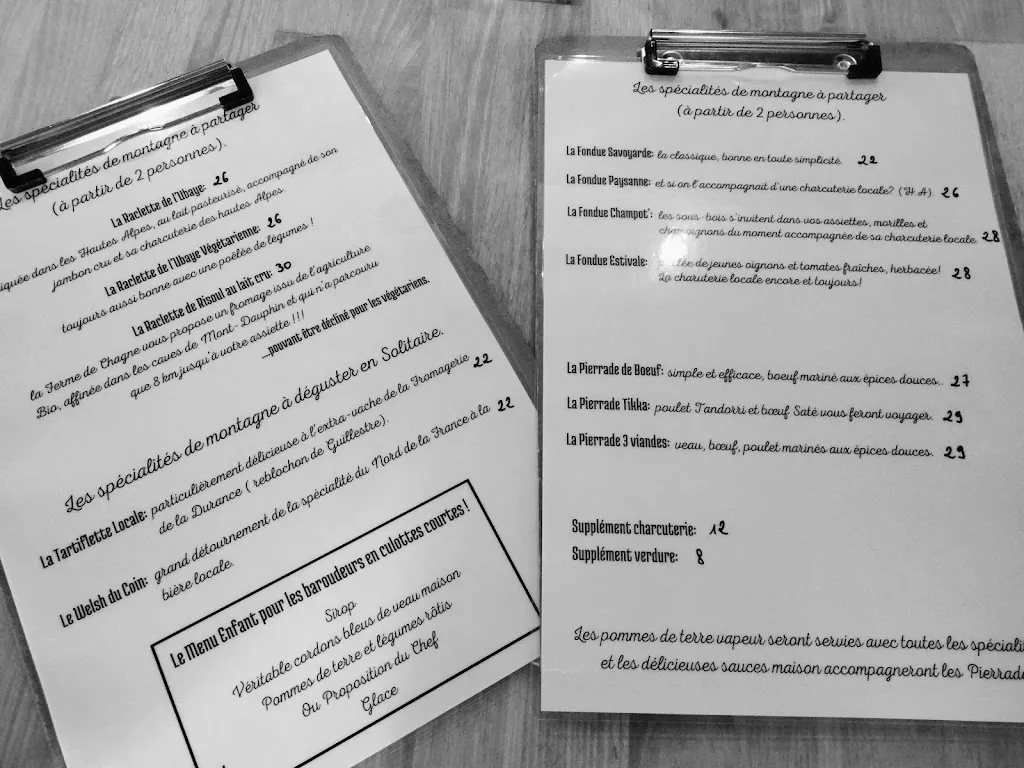 Les spécialités de montagne à partager
(à partir de 2 personnes).
La Raclette de l'Ubaye: 26
dans les Hautes Alpes, au lait pasteurisé, accompagné de son
jambon cru et sa charcuterie des hautes Alpes
La Raclette de l'Ubaye Végétarienne: 26
toujours aussi bonne avec une poêlée de légumes !
La Raclette de Risoul au lait cru: 30
la Ferme de Chagne vous propose un fromage issu de l'agriculture
Bio, affinée dans les caves de Mont-Dauphin et qui n'a parcouru
que 8 km jusqu'à votre assiette !!!
...pouvant être décliné pour les végétariens.
Les spécialités de montagne à déguster en Solitaire.
La Tartiflette Locale: particulièrement délicieuse à l'extra-vache de la Fromagerie 22
de la Durance ( reblochon de Guillestre).
Le Welsh du Coin: grand détournement de la spécialité du Nord de la France à la 22
bière locale.
Le Menu Enfant pour les baroudeurs en culottes courtes !
Sirop
Véritable cordons bleus de veau maison
Pommes de terre et légumes rôtis
Ou Proposition du Chef
Glace
Les spécialités de montagne à partager
(à partir de 2 personnes).
La Fondue Savoyarde: la classique, bonne en toute simplicité. 22
La Fondue Paysanne: et si on l'accompagnait d'une charcuterie locale? (H.A). 26
La Fondue Champot': les sous-bois s'invitent dans vos assiettes, morilles et
champignons du moment accompagnée de sa charcuterie locale. 28
La Fondue Estivale: de jeunes oignons et tomates fraîches, herbacée! 28
La charuterie locale encore et toujours!
La Pierrade de Boeuf: simple et efficace, boeuf mariné aux épices douces.. 27
La Pierrade Tikka: poulet Tandorri et bœuf Saté vous feront voyager. 29
La Pierrade 3 viandes: veau, bœuf, poulet marinés aux épices douces. 29
Supplément charcuterie: 12
Supplément verdure: 8
Les pommes de terre vapeur seront servies avec toutes les
et les délicieuses sauces maison accompagneront les